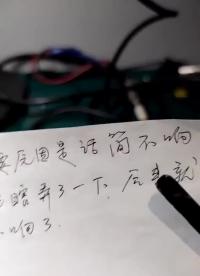 要原因是话筒不响
瞎弄了一下,后来就
响了.